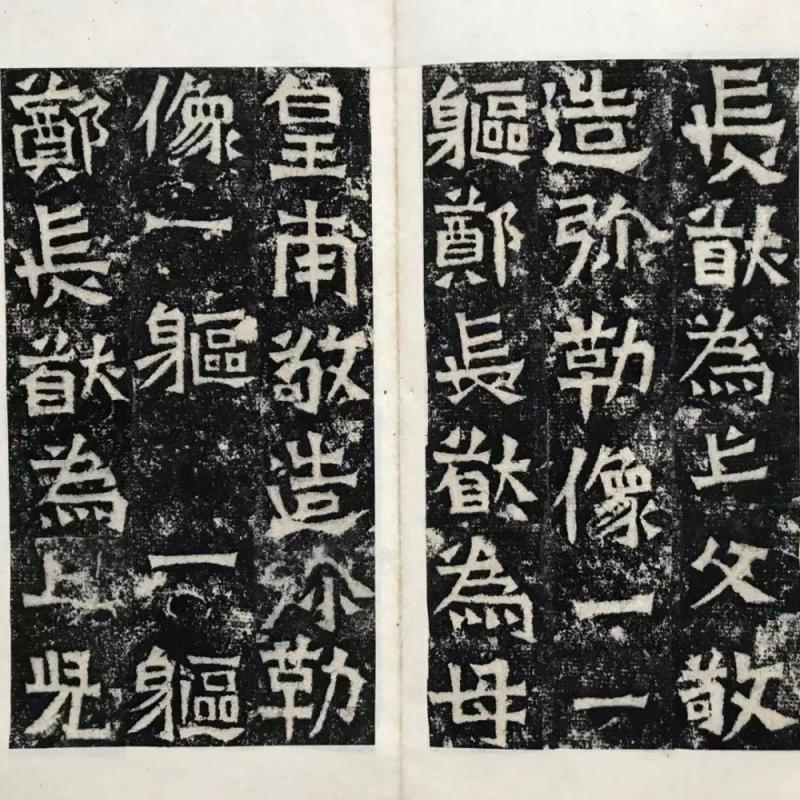 長猷為亡父敬
造弥勒像一一
軀鄭長猷為母
皇甫敬造弥勒
像一軀一軀
鄭長猷為亡児